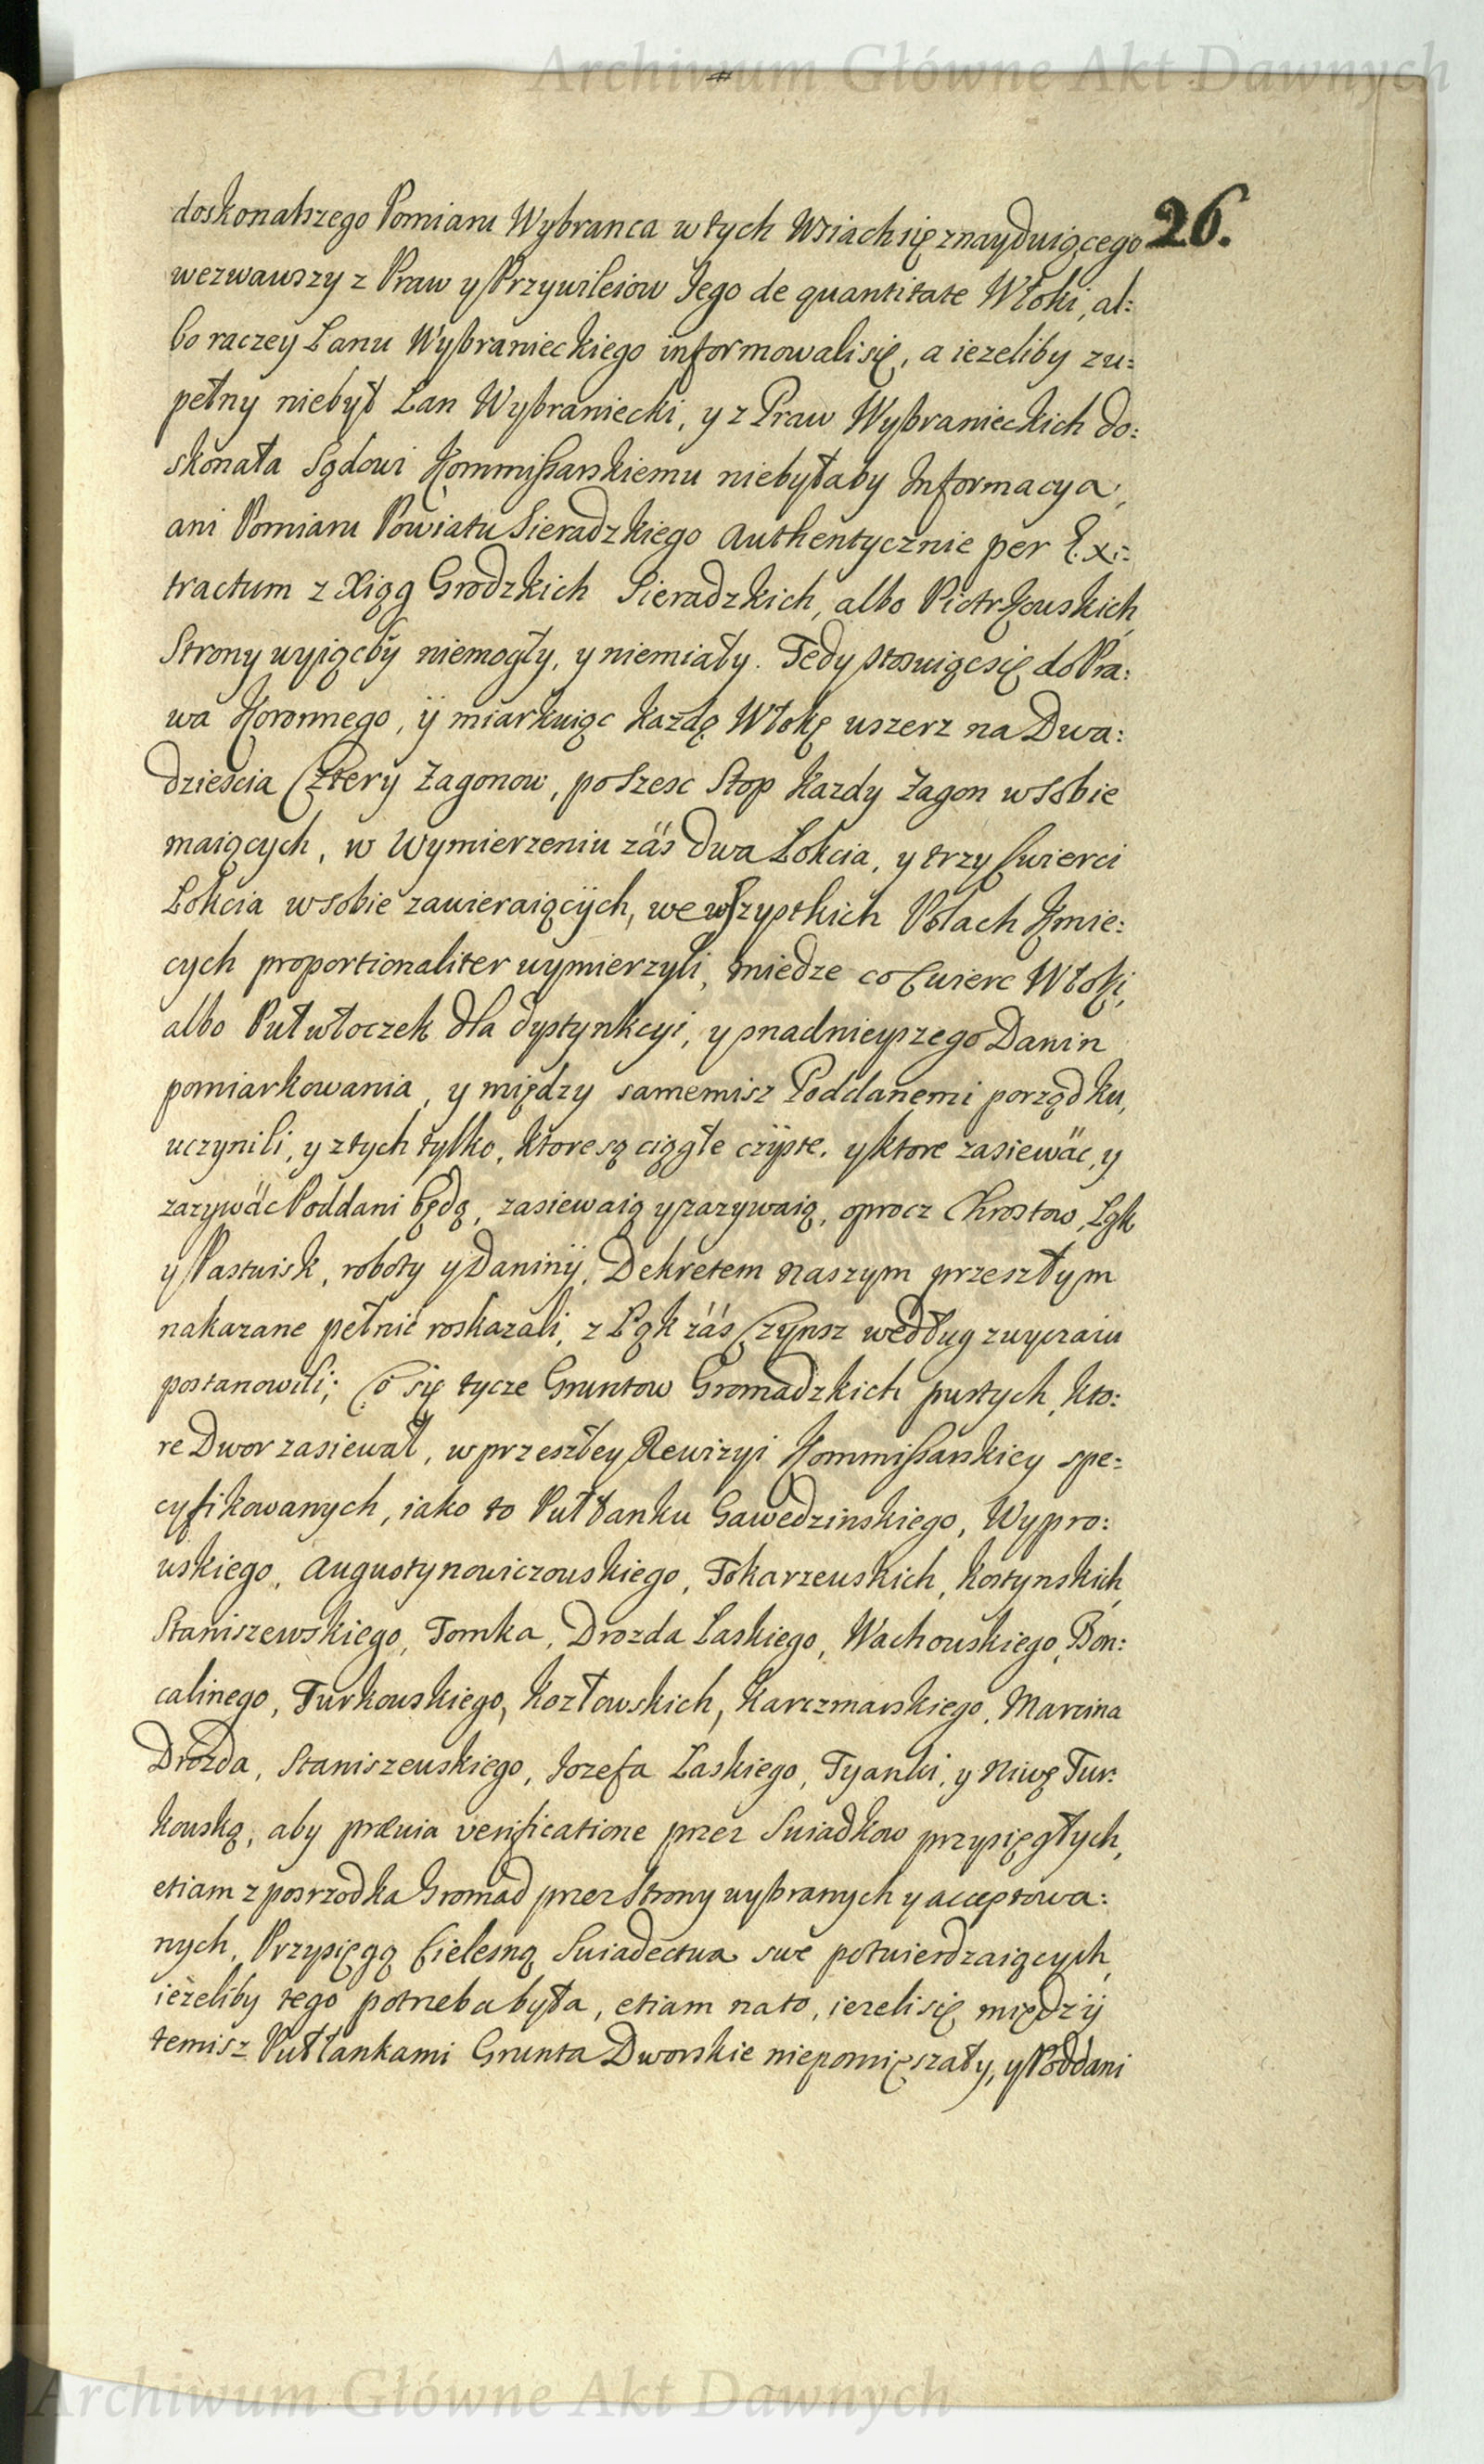 Archiwum Główne Akt Dawnych
26.
doskonalszego Pomiaru Wybranca w tych Wsiach się znayduiącego
wezwawszy z Praw y Przywileiow Jego de quantitate Włoki, al:
bo raczey Lanu Wybranieckiego informowali się, a iezeliby zu:
pełny niebył Lan Wybraniecki, y z Praw Wybranieckich do:
skonała Sądowi Kommissarskiemu niebyłaby Informacya,
ani Pomiaru Powiatu Sieradzkiego Authentycznie per Ex:
tractum z Xiąg Grodzkich Sieradzkich, albo Piotrkowskich
Strony wyiącby niemogły, y niemiały. Tedy stosuiąc się do Pra:
wa Koronnego, ÿ miarkuiąc każdą Włokę wszerz na Dwa:
dzieścia Cztery Zagonow, po Szesc Stop Kazdy Zagon w Sobie
maiących, w Wymierzeniu záś dwa Łokcia, y trzy Cwierci
Łokcia w Sobie zawieraiącÿch, we wszystkich Polach Kmie:
cych proportionaliter wymierzyli, miedze co Cwierc Włoki,
albo Puł włoczek dla dystynkcyi, y snadnieyszego Danin
pomiarkowania, y między samemisz Poddanemi porządku,
uczynili, y z tych tylko, ktore są ciągłe czÿste, y ktore zasiewäc, y
zazywäc Poddani będą, zasiewaią y zazywaią, oprocz Chrostow, Łąk
y Pastwisk, roboty y Daninÿ, Dekretem naszym przeszłym
nakazane pełnić roskazali, z Łąk záś Czynsz według zwyczaiu
postanowili; Co się tycze Gruntow Gromadzkich pustych, kto:
re Dwor zasiewał, w przeszłey Rewizyi Kommissarskiey spe:
cyfikowanych, iako to Puł łanku Gawedzinskiego, Wypro:
wskiego, Augustynowiczowskiego, Tokarzewskich, Kostynskich,
Staniszewskiego, Tomka, Drozda Laskiego, Wachowskiego, Bon:
calinego, Turkowskiego, Kozłowskich, Karczmarskiego, Marcina
Drozda, Staniszewskiego, Jozefa Laskiego, Tyanki, y Niwę Tur:
kowską, aby prævia verificatione przez Swiadkow przysięgłych,
etiam z posrzodka Gromad przez Strony wybranych y acceptowa:
nych, Przysięgą Cielesną Swiadectwa swe potwierdzaiących,
ieżeliby tego potrzeba była, etiam na to, iezeli się międzÿ
temisz Pułłankami Grunta Dworskie niepomięszały, y Poddani
Archiwum Główne Akt Dawnych